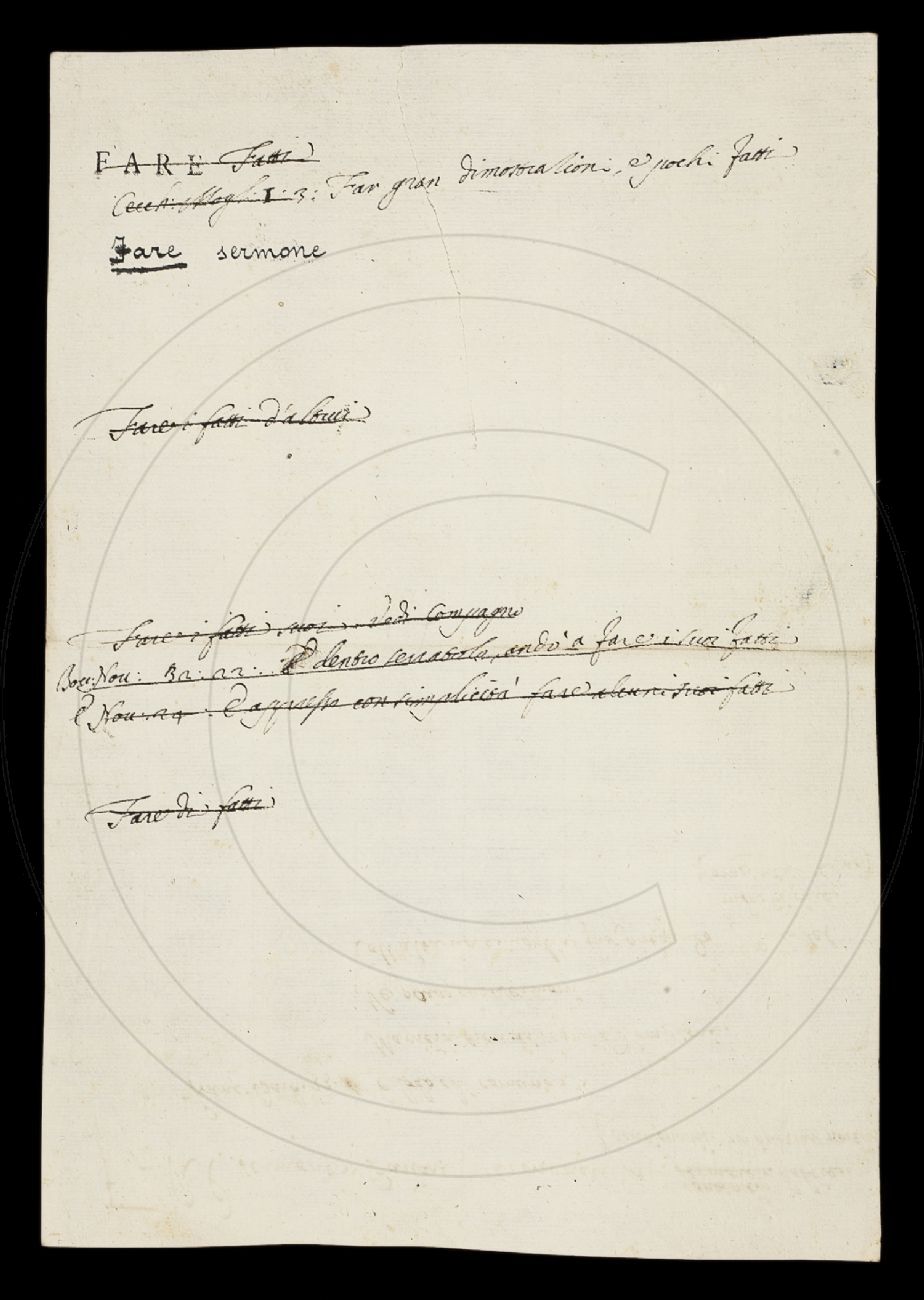 FARE Fatti
Cecch: Mogl: 1. 3: Far gran dimostrationi, e pochi fatti
Fare sermone
Fare i fatti d'altrui
Fare i fatti suoi. Vedi Compagno
Bocc: Nou: 32. 22: E dentro serratola, andò a fare i suoi fatti
E Nou: 24: E appresso con simplicità fare alcuni suoi fatti
Fare di fatti